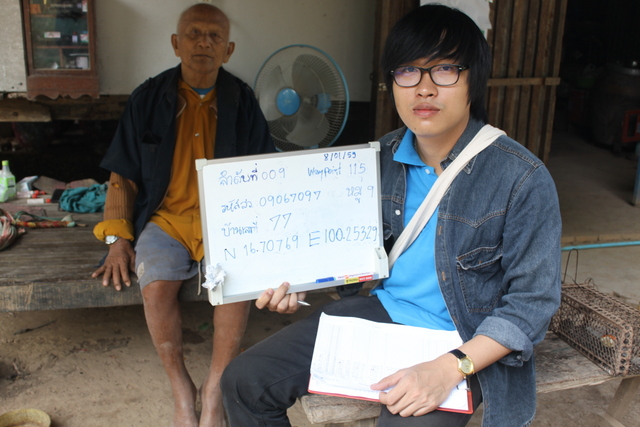 8/01/59
ลำดับที่ 009 Waypoint 115
รหัสผล 09067097 หมู่ 9
บ้านเลขที่ 77
N 16.70769 E 100.25329